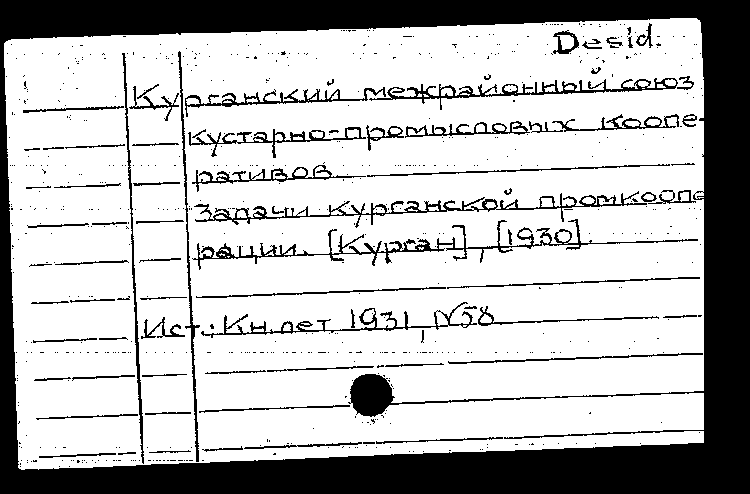 Desid.
Курганский межрайонный союз
кустарно-промысловых коопе-
ративов
Задачи курганской промкоопе
рации. [Курган], [1930].
Ист.: Кн.лет 1931, N58